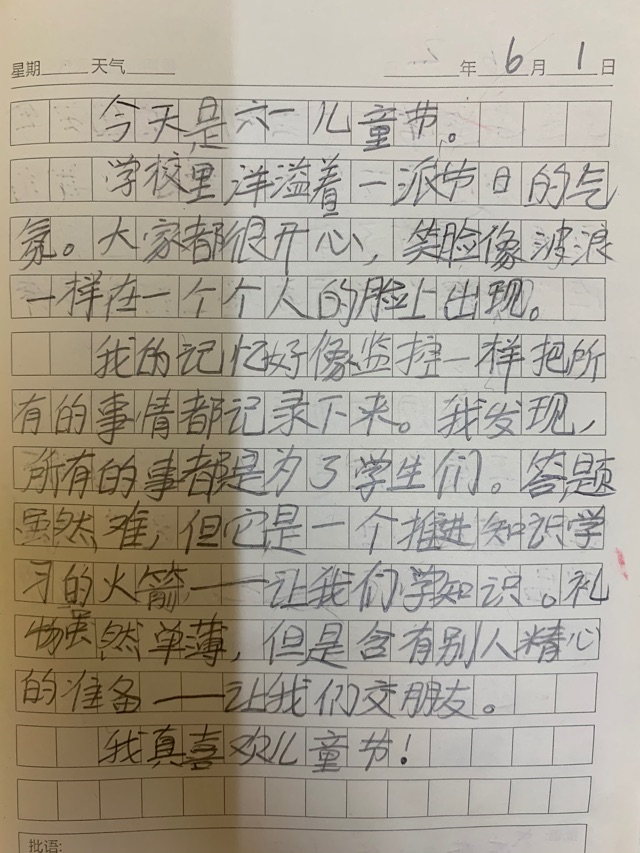 星期 天气 年6月1日
今天是六一儿童节。
学校里洋溢着一派节日的气
氛。大家都很开心,笑脸像波浪
一样在一个个人的脸上出现。
我的记忆好像监控一样把所
有的事情都记录下来。我发现,
所有的事都是为了学生们。答题
虽然难,但它是一个推进知识学
习的火箭——让我们学知识。礼
物虽然单薄,但是含有别人精心
的准备——让我们交朋友。
我真喜欢儿童节!
批语: